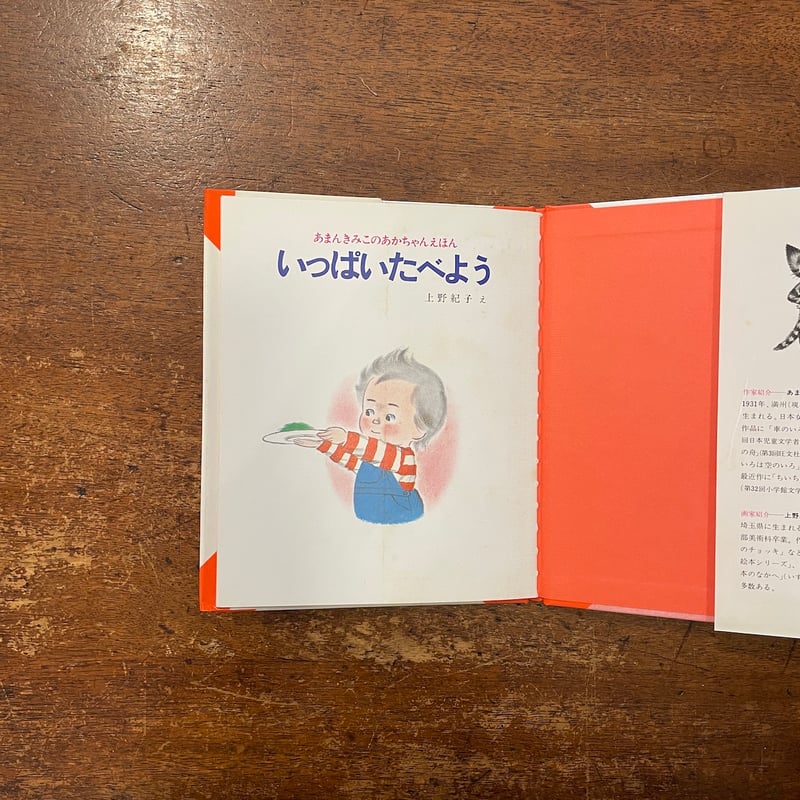 あまんきみこのあかちゃんえほん
いっぱいたべよう
上野紀子 え
作家紹介──あま
1931年、満州(現
生まれる。日本女
作品に「車のいろ
回日本児童文学者
の舟」(第30回旺文社
いろは空のいろ」
最近作に「ちいち
(第32回小学館文学
画家紹介──上野
埼玉県に生まれる
部美術科卒業。作
のチョッキ」など
絵本シリーズ」、
本のなかへ」(いず
多数ある。